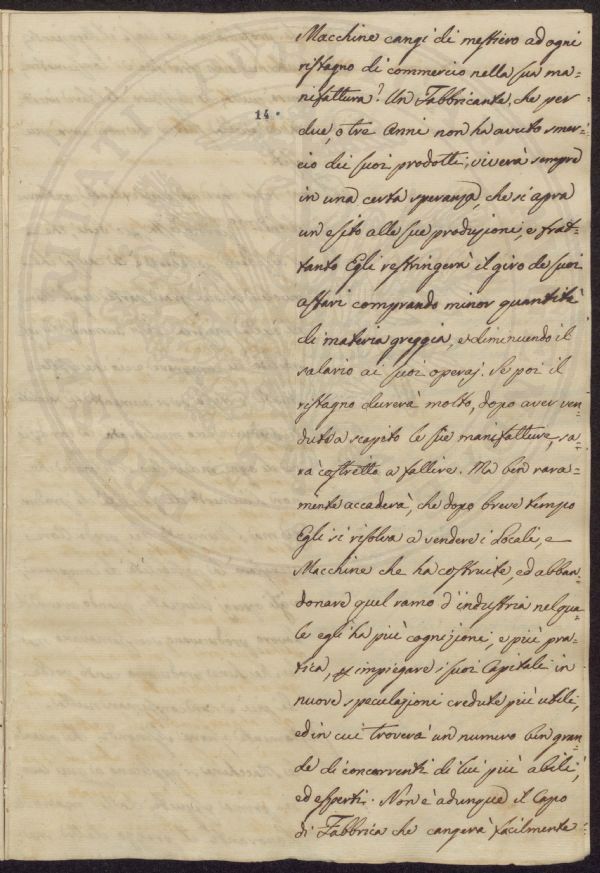 14.
Macchine cangi di mestiero ad ogni
ristagno di commercio nella sua ma=
nifattura? Un Fabbricante, che per
due, o tre Anni non ha avuto smer=
cio dei suoi prodotti, viverà sempre
in una certa speranza, che si apra
un esito alle sue produzioni, e frat=
tanto Egli restringerà il giro de' suoi
affari comprando minor quantità
di materia greggia, e diminuendo il
salario ai suoi operaj. Se poi il
ristagno durerà molto, dopo aver ven=
duto a scapito le sue manifatture, sa=
rà costretto a fallire. Ma ben rara=
mente accaderà, che dopo breve tempo
Egli si risolva a vendere i Locali, e
Macchine che ha costruite, ed abban=
donare quel ramo d'industria nel qua=
le egli ha più cognizioni, e più pra=
tica, ed impiegare i suoi Capitali in
nuove speculazioni credute più utili,
ed in cui troverà un numero ben gran=
de di concorrenti di lui più abili,
ed esperti. Non è adunque il Capo
di Fabbrica che cangerà facilmente